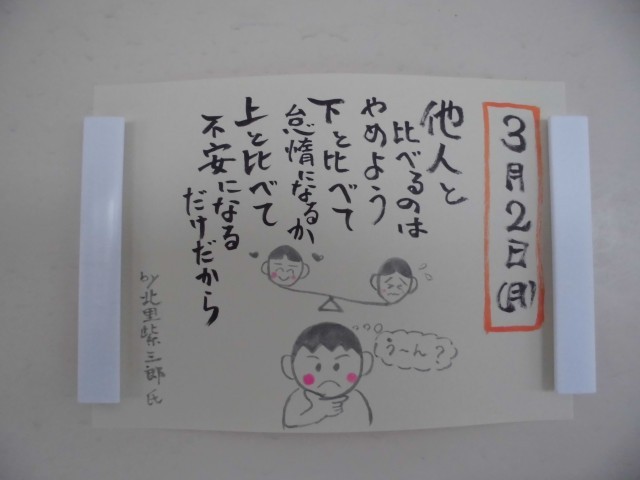 3月2日(月)
他人と
比べるのは
やめよう
下と比べて
怠惰になるか
上と比べて
不安になる
だけだから
う〜ん?
by北里紫三郎氏